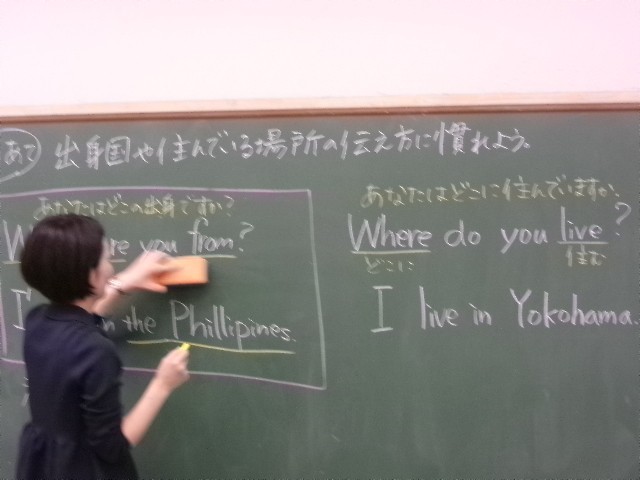 めあて 出身国や住んでいる場所の伝え方に慣れよう。
あなたはどこの出身ですか?
you from?
I
the Phillipines.
あなたはどこに住んでいますか。
Where do you live?
どこに 住む
I live in Yokohama.